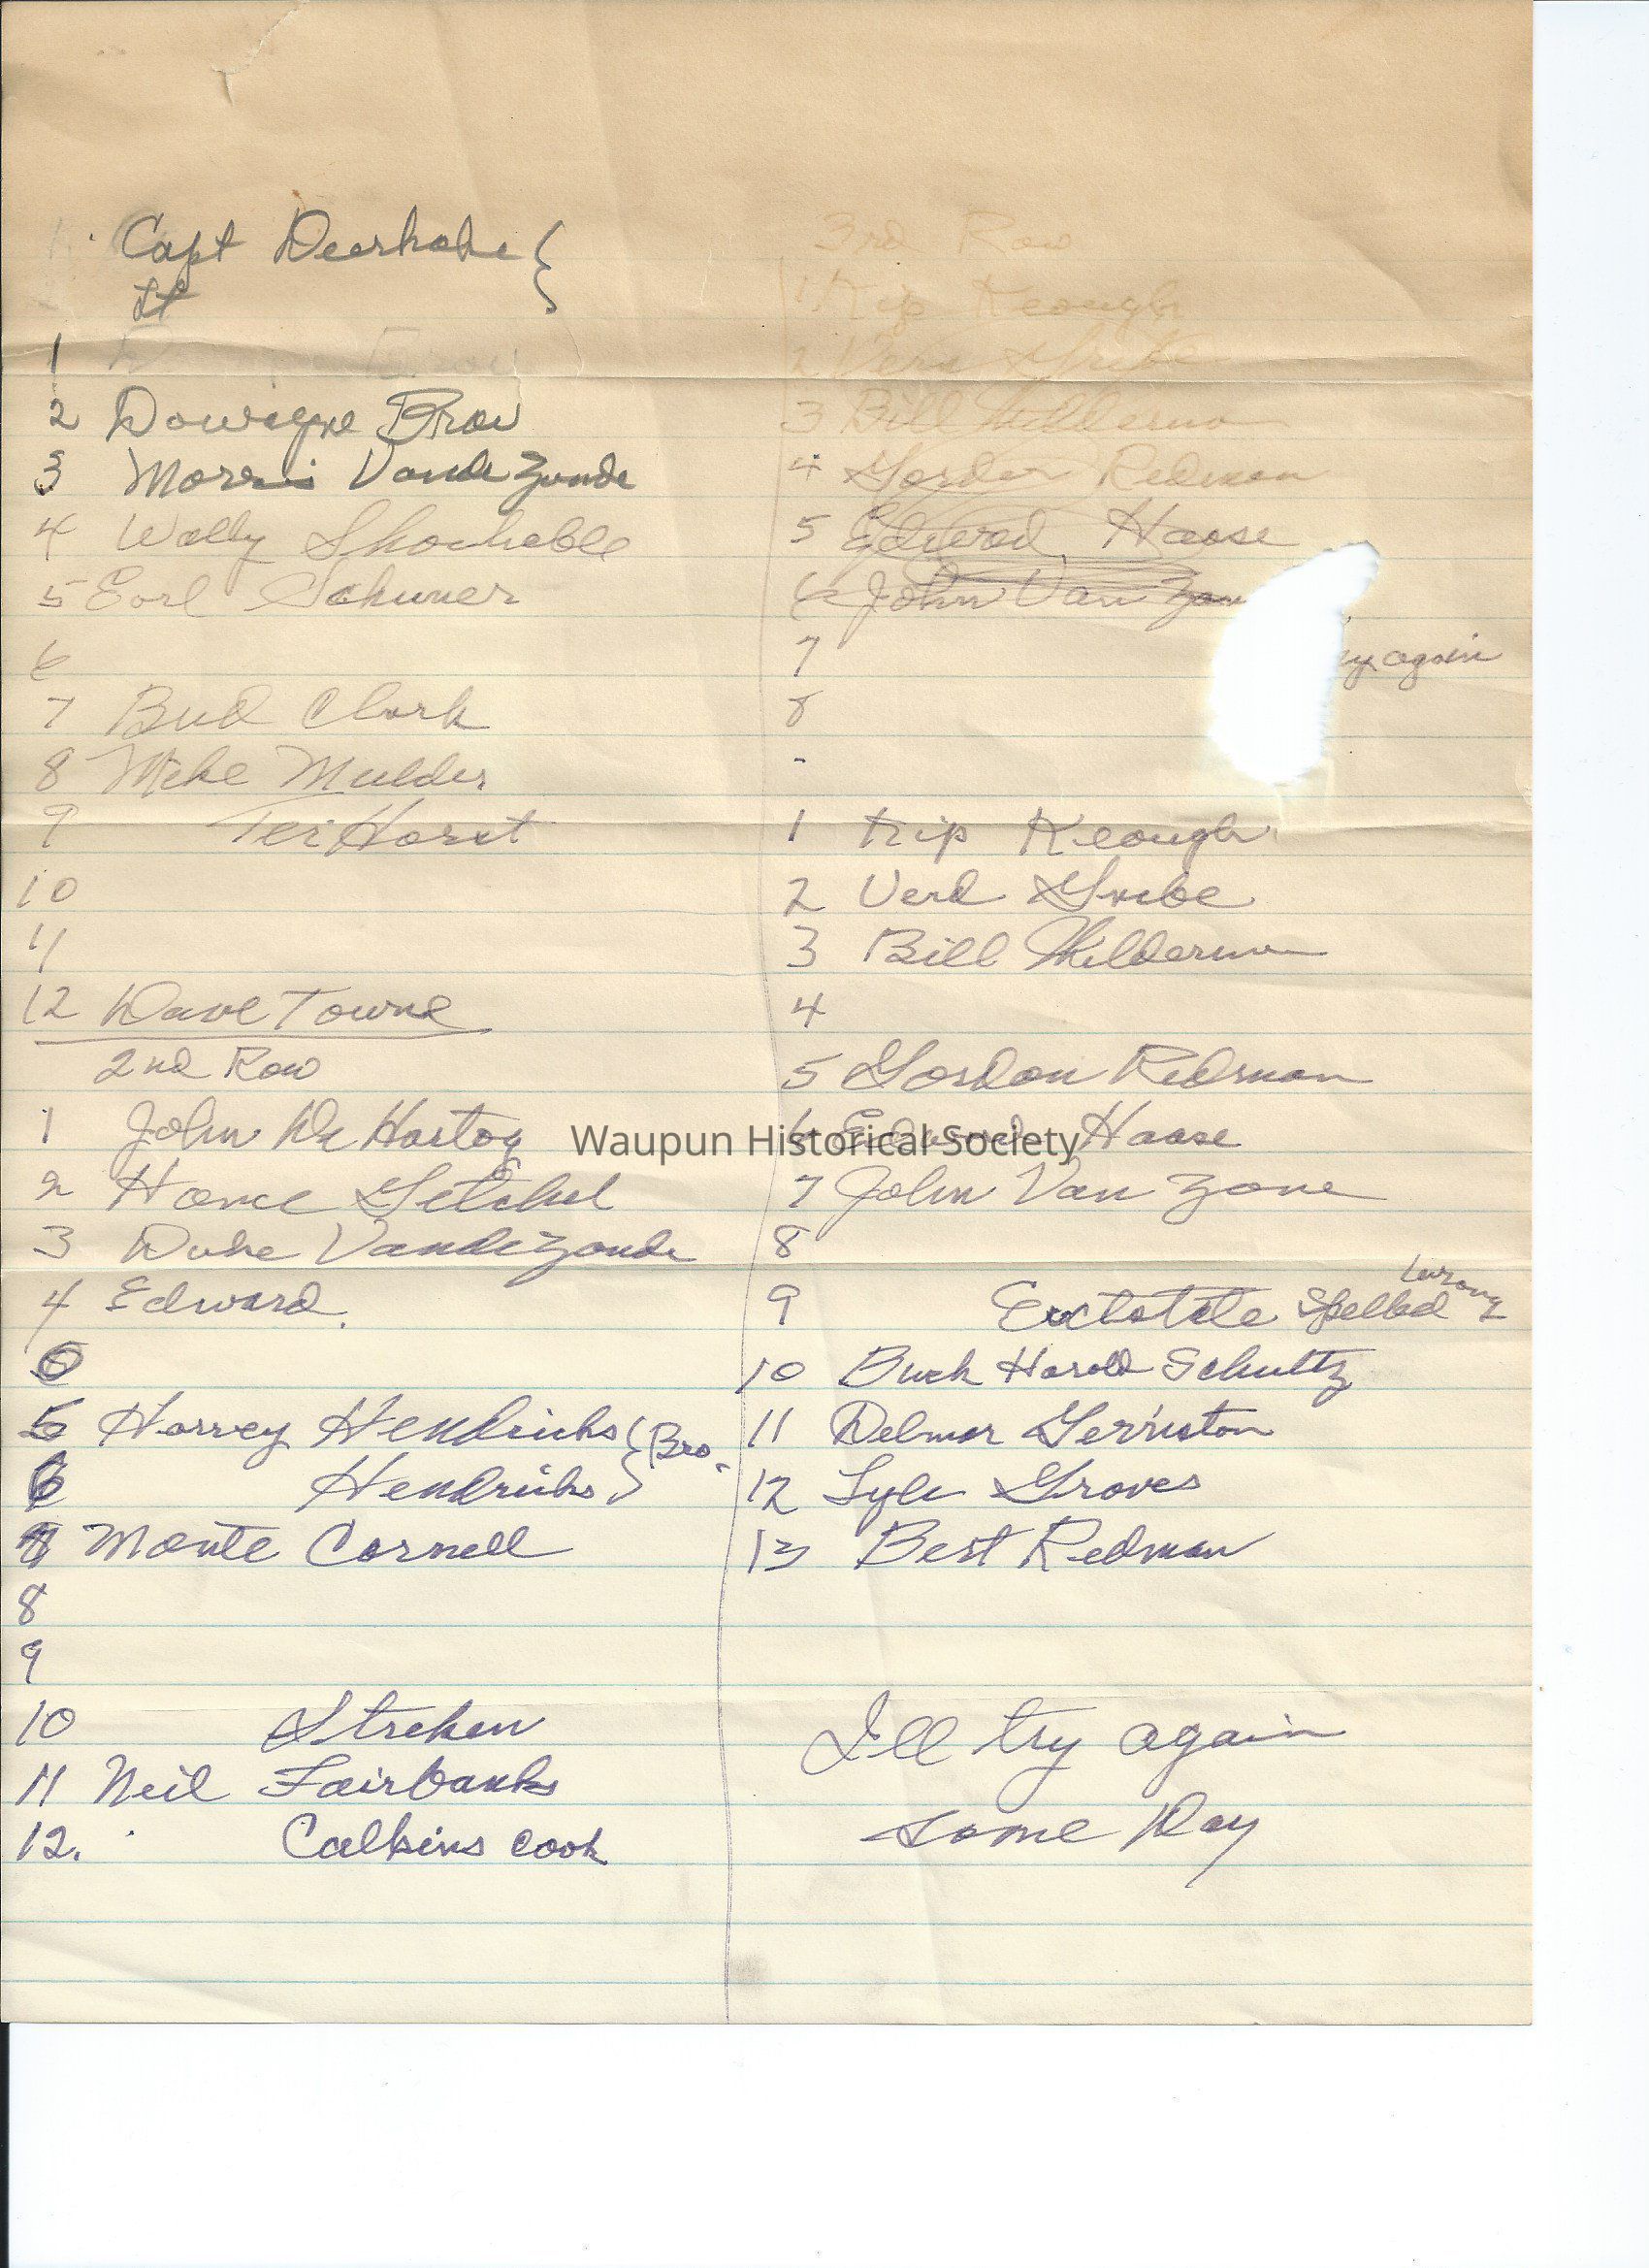 Capt Deerhake
Lt
1
2 Dowayne Brow
3 Morris VandeZande
4 Wally
5 Earl Schuner
6
7 Bud Clark
8 Mike Mulder
9 TerHorst
10
11
12 Dave Towne
2nd Row
1 John De Hartog
2 Getchel
3 Duke VandeZande
4 Edward.
6
5 Harvey Hendricks Bro.
6 Hendricks
7 Monte Cornell
8
9
10 Streken
11 Neil Fairbanks
12. Calkins cook
3rd Row
1 Trip Keough
2 Vern Grebe
3 Bill Wilderman
4 Gordon Redman
5 Edward Haase
6 John Van Zan
7 again
8
-
1 Trip Keough
2 Verd Grebe
3 Bill Wilderman
4
5 Gordon Redman
6 Edward Haase
7 John Van Zone
8
9 Spelled wrong
10 Buck Harold Schultz
11 Delmar Gerriston
12 Lyle Groves
13 Bert Redman
I'll try again
some Day
Waupun Historical Society